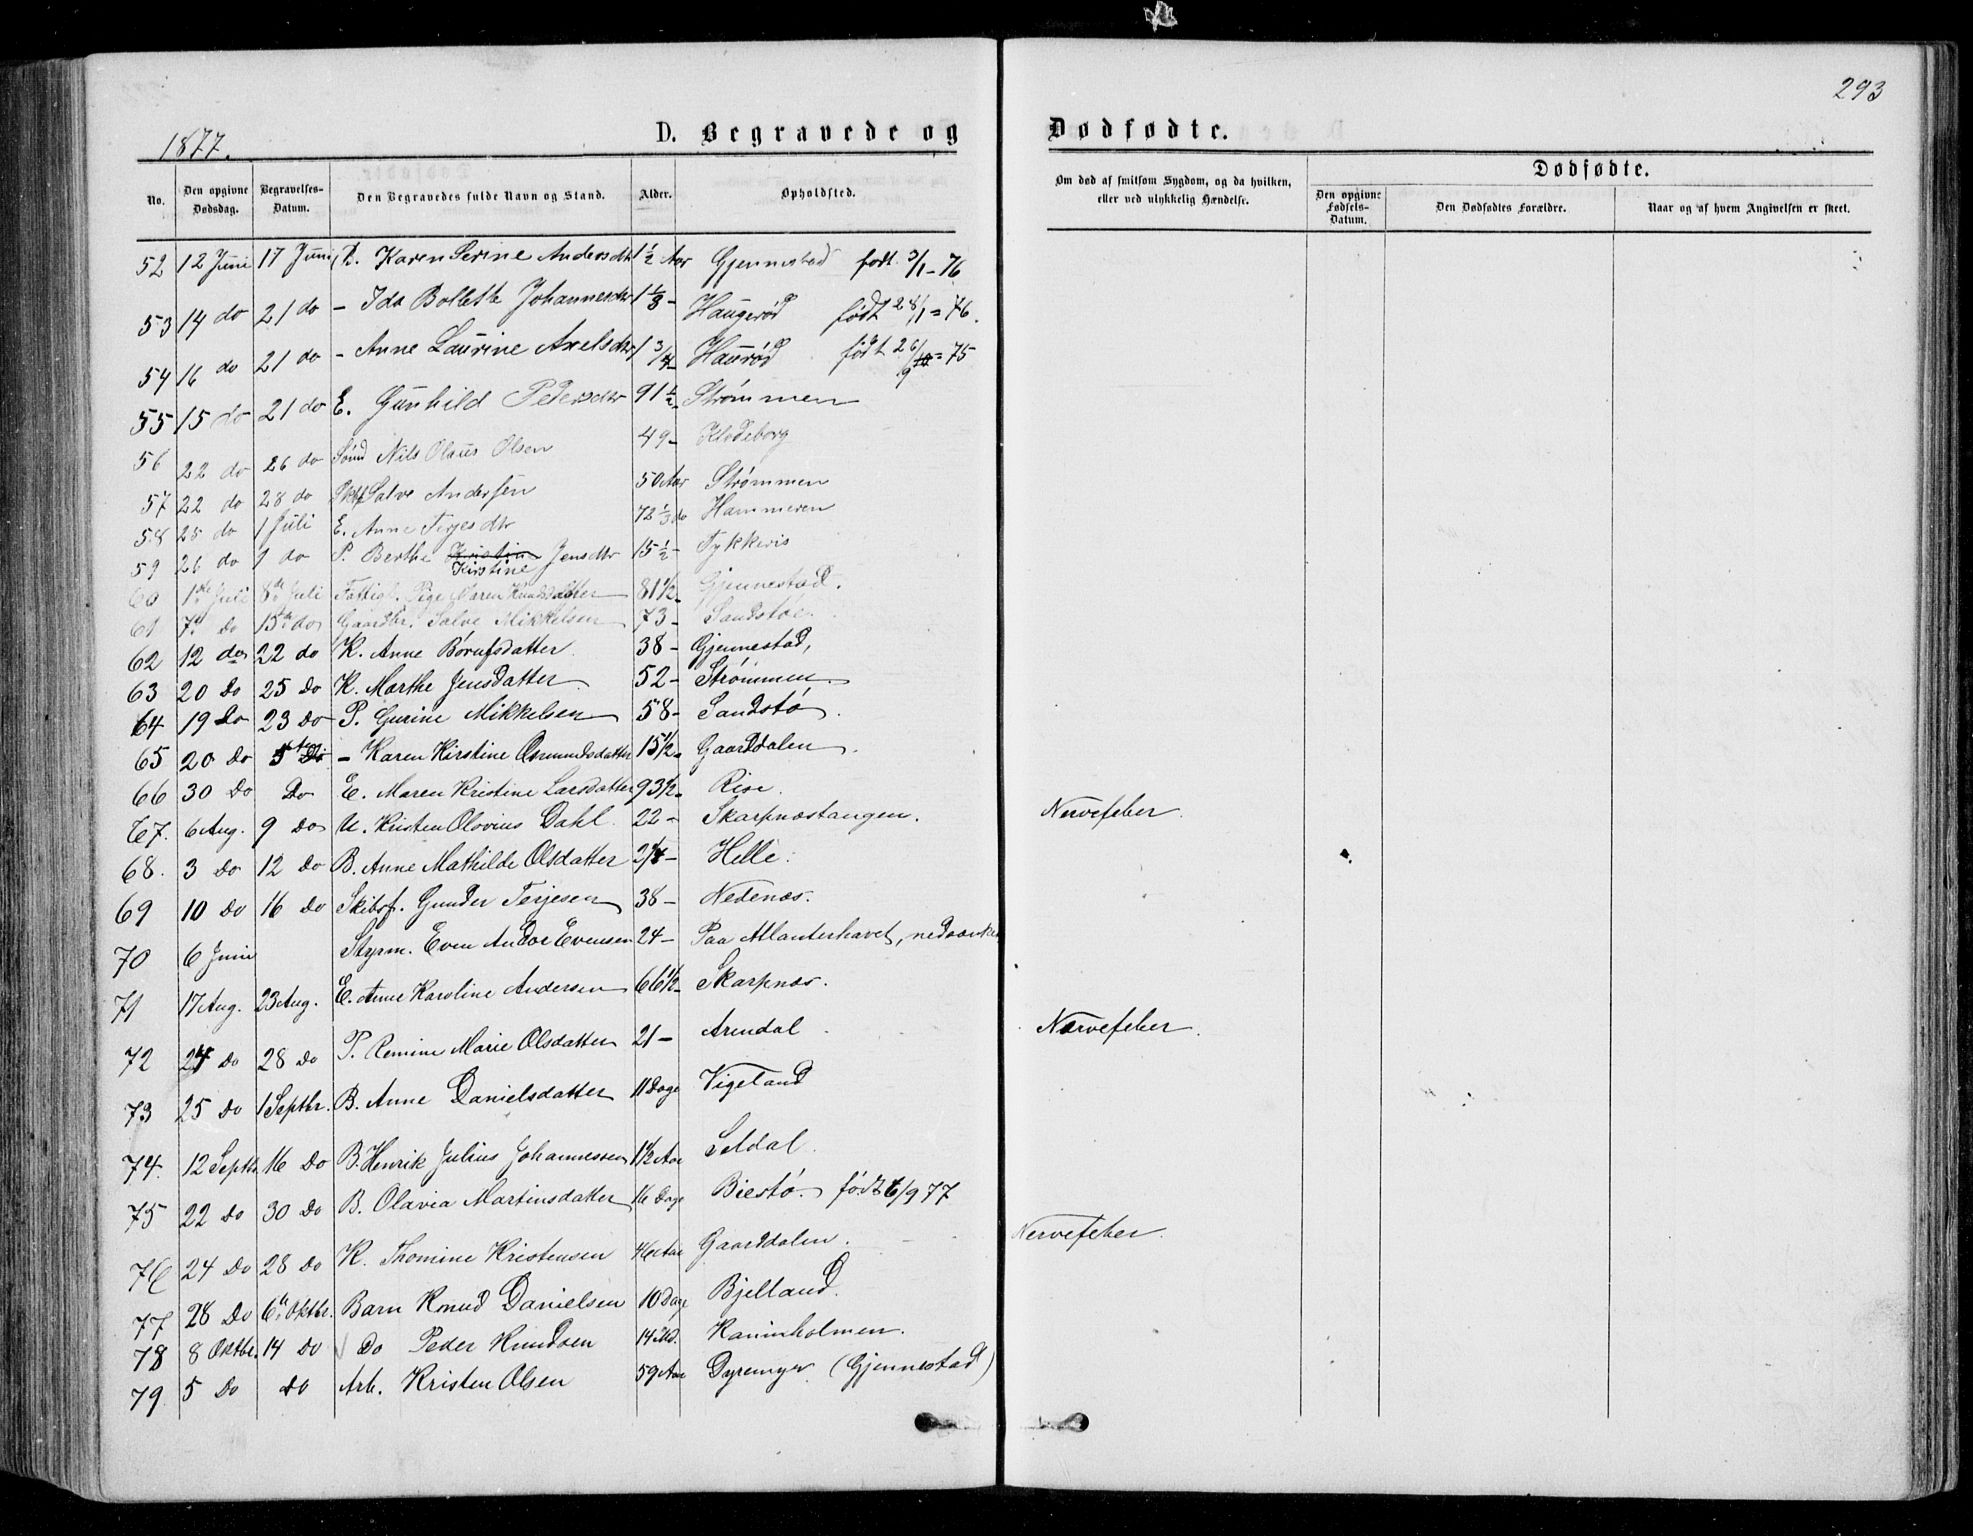 293
1877.
D. Begravede og Dødfødte.
No.
Den opgivne Dødsdag.
Begravelses-Datum.
Den Begravedes fulde Navn og Stand.
Alder.
Opholdsted.
Om død af smitsom Sygdom, og da hvilken, eller ved ulykkelig Hændelse.
Dødfødte.
Den opgivne Fødsels-Datum.
Den Dødfødtes Forældre.
Naar og af hvem Angivelsen er skeet.
52 12 Juni 17 Juni B. Karen Serine Andersdtr 1½ Aar Gjennestad født 3/1-76
53 14 do 21 do - Ida Bollette Johannesdtr 1⅓ - Haugerød født 28/1=76.
54 16 do 21 do - Anne Laurine Axelsdtr 1 3/4 - Haurød født 26/9=75
55 15 do 21 do E. Gunhild Pedersdtr 91½ - Strømmen
56 22 do 26 do Nils Olaus Olsen 49 - Klodeborg
57 22 do 28 do Salve Andersen 50 Aar Strømmen
58 25 do 1 Juli E. Anne Terjesdtr 72⅓ do Hammeren
59 26 do 1 do P. Berthe Kristine Kirstine Jensdtr 15½ - Tykkeris
60 1ste Juli 8de Juli Fattigl. Pige Maren Knudsdatter 81½ - Gjennestad.
61 7de do 15de do Gaardbr. Salve Mikkelsen 73 - Sandstøe.
62 12 do 22 do K. Anne Børufsdatter 38 - Gjennestad,
63 20 Do 25 Do K. Marthe Jensdatter 52 - Strømmen.
64 19 Do 23 Do P. Gurine Mikkelsen 58 - Sandstø.
65 20 Do 5te - Karen Kirstine Osmundsdatter 15½ - Gaarddalen.
66 30 Do Do E. Maren Kristine Larsdatter 93½ - Rise.
67. 6 Aug. 9 Do U. Kristen Olovius Dahl. 22 - Skarpnæstangen. Nervefeber.
68. 3 Do 12 Do B. Anne Mathilde Olsdatter 2¼ - Helle.
69 10 Do 16 Do Skibsf. Gunder Terjesen 38 - Nedenæs.
70 6 Juni Styrm. Even Andor Evensen 24 - Paa Atlanterhavet, nedsænket
71 17 Aug. 23 Aug. E. Anne Karoline Andersen 66½ - Skarpnæs.
72 24 Do 28 Do P. Remine Marie Olsdatter 21 - Arendal Nervefeber.
73 25 Do 1 Septbr. B. Anne Danielsdatter 11 Dage Vigeland
74. 12 Septb. 16 Do B. Henrik Julius Johannessen 1½ Aar Seldal.
75 22 Do 30 Do B. Olavia Martinsdatter 16 Dage Biestø. født 6/9 77
76 24 Do 28 Do K. Thomine Kristensen 46 Aar Gaarddalen. Nervefeber.
77 28 Do 6te Oktbr. Barn Knud Danielsen 10 Dage Bjelland.
78 8 Oktbr. 14 Do Do Peder Knudsen 14 Md. Kaninholmen.
79 5 Do Do Arb. Kristen Olsen 59 Aar Dyremyr (Gjennestad)